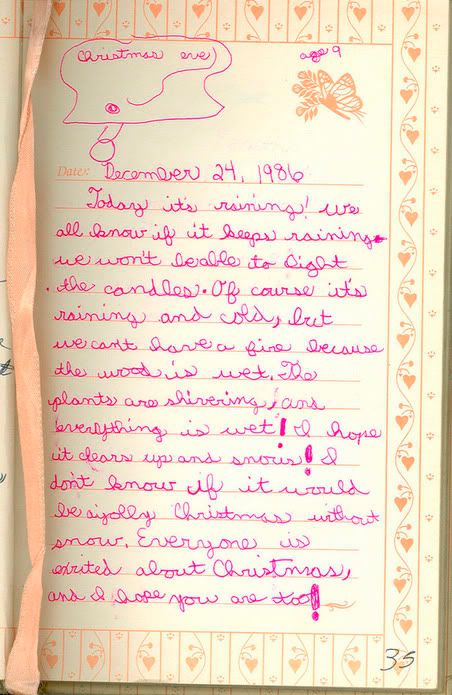 Christmas eve
age 9
Date: December 24, 1986
Today it's raining! We
all know if it keeps raining
we won't be able to light
the candles. Of course it's
raining and cold, but
we can't have a fire because
the wood is wet. The
plants are shivering, and
everything is wet! I hope
it clears up and snows! I
don't know if it would
be a jolly Christmas without
snow. Everyone is
exited about Christmas,
and I hope you are too!
35